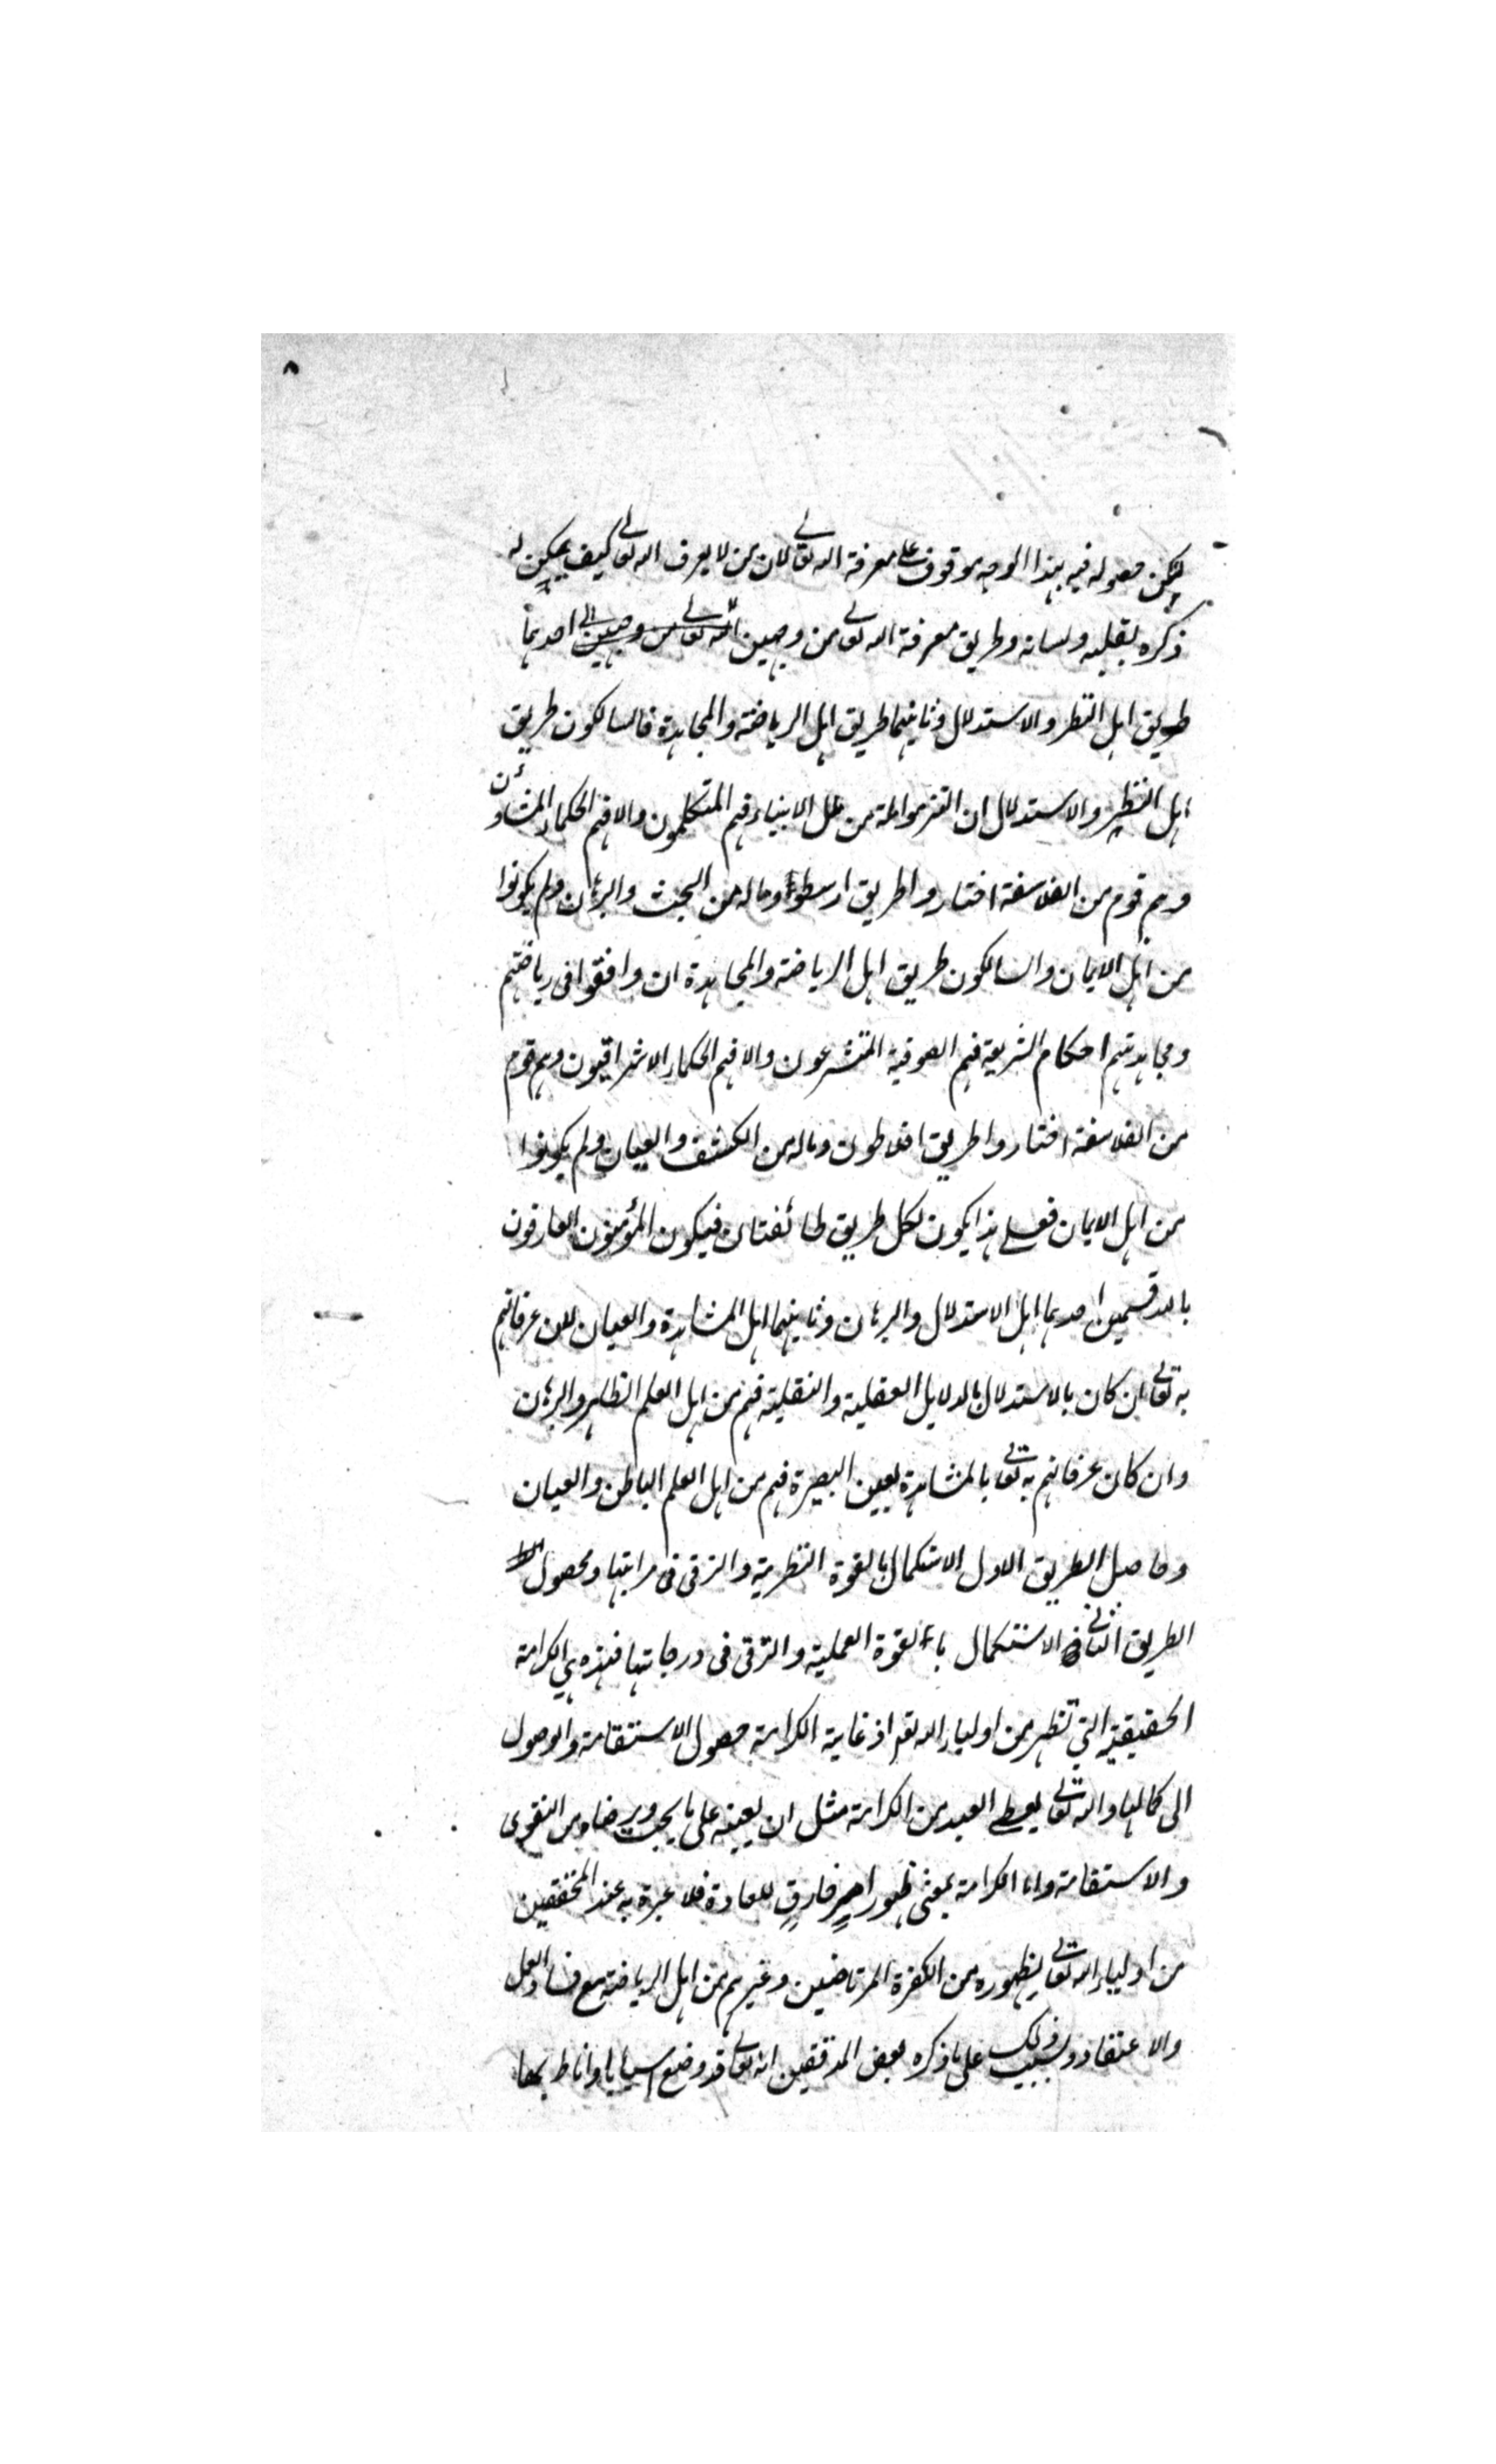 ٨
لكن حصوله فيه بهذا الوجه موقوف على معرفة الله تعالى لان من لا يعرف الله تعالى كيف يمكن له
ذكره بقلبه ولسانه وطريق معرفة الله تعالى من وجهين الله تعالى من وجهين احدهما
طريق اهل النظر والاستدلال وثانيهما طريق اهل الرياضة والمجاهدة فالسالكون طريق
اهل النظر والاستدلال ان التزموا ملة من ملل الانبياء فهم المتكلمون والا فهم الحكماء المشاؤن
وهم قوم من الفلاسفة اختاروا طريق ارسطو وماله من البحث والبرهان ولم يكونوا
من اهل الايمان والسالكون طريق اهل الرياضة والمجاهدة ان وافقوا فى رياضتهم
ومجاهدتهم احكام الشريعة فهم الصوفية المتشرعون والا فهم الحكماء الاشراقيون وهم قوم
من الفلاسفة اختاروا طريق افلاطون وماله من الكشف والعيان ولم يكونوا
من اهل الايمان فعلى هذا يكون لكل طريق طائفتان فيكون المؤمنون العارفون
بالله قسمين احدهما اهل الاستدلال والبرهان وثانيهما اهل المشاهدة والعيان لان عرفانهم
به تعالى ان كان بالاستدلال بالدلايل العقلية والنقلية فهم من اهل العلم الظاهر والبرهان
وان كان عرفانهم به تعالى بالمشاهدة بعين البصيرة فهم من اهل العلم الباطن والعيان
وحاصل الطريق الاول الاستكمال بالقوة النظرية والترقى فى مراتبها ومحصول
الطريق الثانى الاستكمال بالقوة العملية والترقى فى درجاتها فهذه هي الكرامة
الحقيقية التي تظهر من اولياء الله تعم اذ غاية الكرامة حصول الاستقامة والوصول
الى كمالها والله تعالى يعطي العبد من الكرامة مثل ان يعينه على ما يحب ويرضاه من التقوى
والاستقامة واما الكرامة بمعنى ظهور امر خارق للعادة فلا عبرة به عند المحققين
من اولياء الله تعالى لظهوره من الكفرة المرتاضين وغيرهم من اهل الرياضة مع فساد العمل
والاعتقاد وسبب ذلك على ما ذكره بعض المدققين انه تعالى قد وضع اسبابا واناط بها